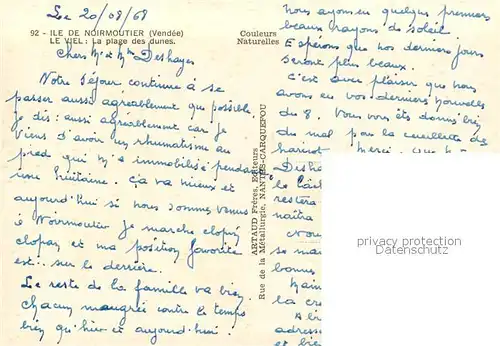 Le 20/08/68
92 - ILE DE NOIRMOUTIER (Vendée)
LE VIEL : La plage des dunes.
Chers Mr et Mme Deshayes
Notre séjour continue à se
passer aussi agréablement que possible.
Je dis : aussi agréablement car je
viens d'avoir un rhumatisme au
pied qui m'a immobilisé pendant
une huitaine. Ça va mieux et
aujourd'hui si nous sommes venus
à Noirmoutier je marche clopin
clopan et ma position favorite
est .. sur le derrière.
Le reste de la famille va bien
chacun maugrée contre le temps
bien qu'hier et aujourd'hui
Couleurs
Naturelles
ARTAUD Frères, Editeurs
Rue de la Métallurgie, NANTES-CARQUEFOU
nous ayons eu quelques premiers
beaux rayons de soleil.
Espérons que nos derniers jours
seront plus beaux.
C'est avec plaisir que nous
avons eu vos dernières nouvelles
du 8. Vous vous êtes donnés bien
du mal pour la cueillette de
haricot
Merci
Desha
restera
naîtra
Nou
se ma
bonne
la
adress
et
privacy protection
Datenschutz